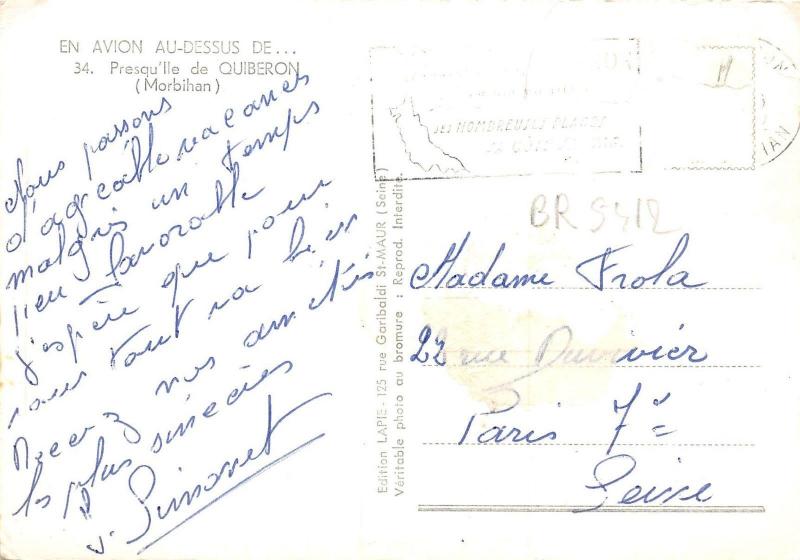 EN AVION AU-DESSUS DE...
34. Presqu'Ile de QUIBERON
(Morbihan)
Nous passons
d'agréable vacances
malgrés un temps
peu favorable
j'espère que pour
vous tout va bien
Recevez nos amitiés
les plus sincères
Edition LAPIE - 125 rue Garibaldi St-MAUR (Seine)
Véritable photo au bromure : Reprod. Interdite.
SES NOMBREUSES PLAGES
BR 5412
Madame Frola
22 rue Duvivier
Paris 7è
Seine